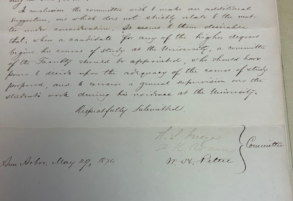 In conclusion the committee wish to make an additional
suggestion, one which does not strictly relate to the matter
under consideration. It seems to them desirable
that, when a candidate for any of the higher degrees
begins his course of study at the University, a committee
of the Faculty should be appointed, who should have
power to decide upon the adequacy of the course of study
proposed, and to exercise a general supervision over the
student's work during his residence at the University.
Respectfully Submitted.
Committee
Ann Arbor, May 29,
W. H. Pettee